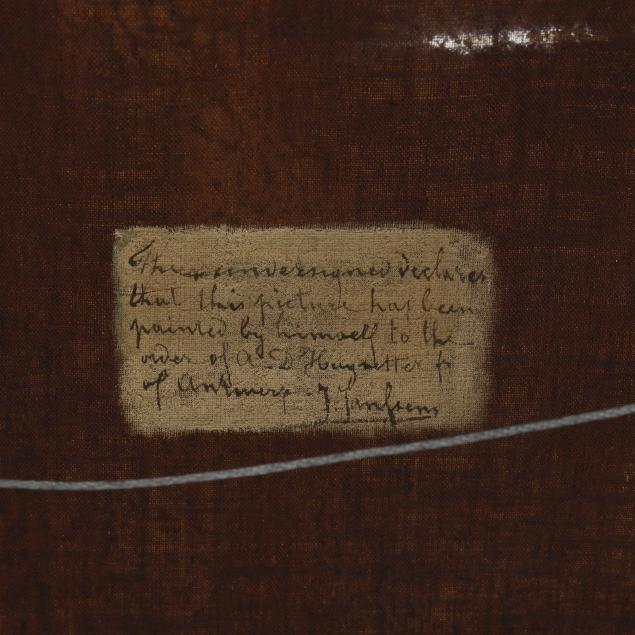 The undersigned declares
that this picture has been
painted by himself to the
order of A. D'Huyvetter fr
of Antwerp. J. Janssens